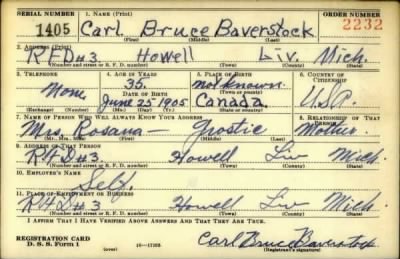 SERIAL NUMBER 1. NAME (Print) ORDER NUMBER
1405 Carl Bruce Baverstock 2232
(First) (Middle) (Last)
2. ADDRESS (Print)
RFD #3 Howell Liv. Mich.
(Number and street or R. F. D. number) (Town) (County) (State)
3. TELEPHONE 4. AGE IN YEARS 5. PLACE OF BIRTH 6. COUNTRY OF CITIZENSHIP
None 35 not known
DATE OF BIRTH (Town or county)
June 25 1905 Canada. U.S.A.
(Exchange) (Number) (Mo.) (Day) (Yr.) (State or country)
7. NAME OF PERSON WHO WILL ALWAYS KNOW YOUR ADDRESS 8. RELATIONSHIP OF THAT PERSON
Mrs. Rosana — Grostic Mother
(Mr., Mrs., Miss) (First) (Middle) (Last)
9. ADDRESS OF THAT PERSON
RFD #3 Howell Liv Mich.
(Number and street or R. F. D. number) (Town) (County) (State)
10. EMPLOYER'S NAME
Self.
11. PLACE OF EMPLOYMENT OR BUSINESS
RFD #3 Howell Liv Mich.
(Number and street or R. F. D. number) (Town) (County) (State)
I AFFIRM THAT I HAVE VERIFIED ABOVE ANSWERS AND THAT THEY ARE TRUE.
REGISTRATION CARD
D. S. S. Form 1 (over) Carl Bruce Baverstock
(Registrant's signature)